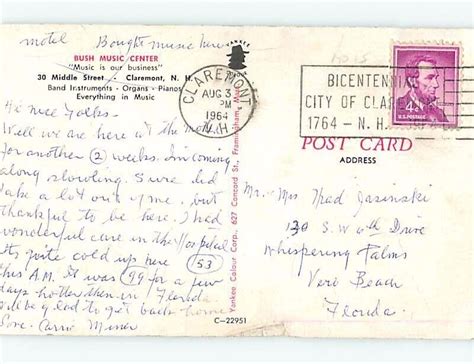 motel Bought music here
BUSH MUSIC CENTER
"Music is our business"
30 Middle Street - Claremont, N. H.
Band Instruments - Organs - Pianos
Everything in Music
Hi nice Folks.
Well we are here at the motel
for another (2) weeks. I'm coming
along slowling. Sure did
take a lot out of me, but
thankful to be here. I had
wonderful care in the Hospital
Its quite cold up here
this A.M. It was (53)
(99) for a few
days hotter then in Florida
will be glad to get back home
Love - Carrie Miner
YANKEE
Yankee Colour Corp., 627 Concord St., Framingham, Mass.
C-22951
CLAREMONT
AUG 3
PM
1964
N.H.
BICENTENNIAL
CITY OF CLAREMONT
1764 - N. H. -
4¢
U.S. POSTAGE
POST CARD
ADDRESS
Mr. & Mrs Thad Jasinski
130 S.W 6th Drive
Whispering Palms
Vero Beach
Florida.